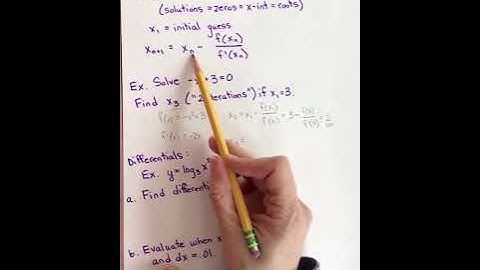 (solutions = zeros = x-int = roots)
x₁ = initial guess
xₙ₊₁ = xₙ - f(xₙ)/f'(xₙ)
Ex. Solve -x +3=0
Find x₃ ("2 iterations") if x₁=3.
f(x) = -x²+3
x₂ = x₁ - f(x₁)/f'(x₁) = 3 - f(3)/f'(3) =
f'(x) = -2x
Differentials:
Ex. y = log₃ x
a. Find differenti
b. Evaluate when x
and dx = .01.